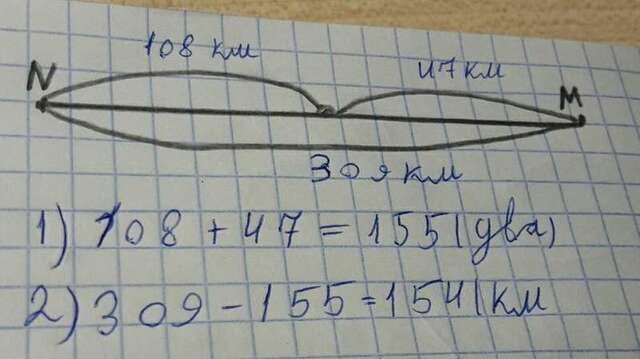 108 км
47 км
N
M
309 км
1) 108 + 47 = 155 (два)
2) 309 - 155 = 154 (км